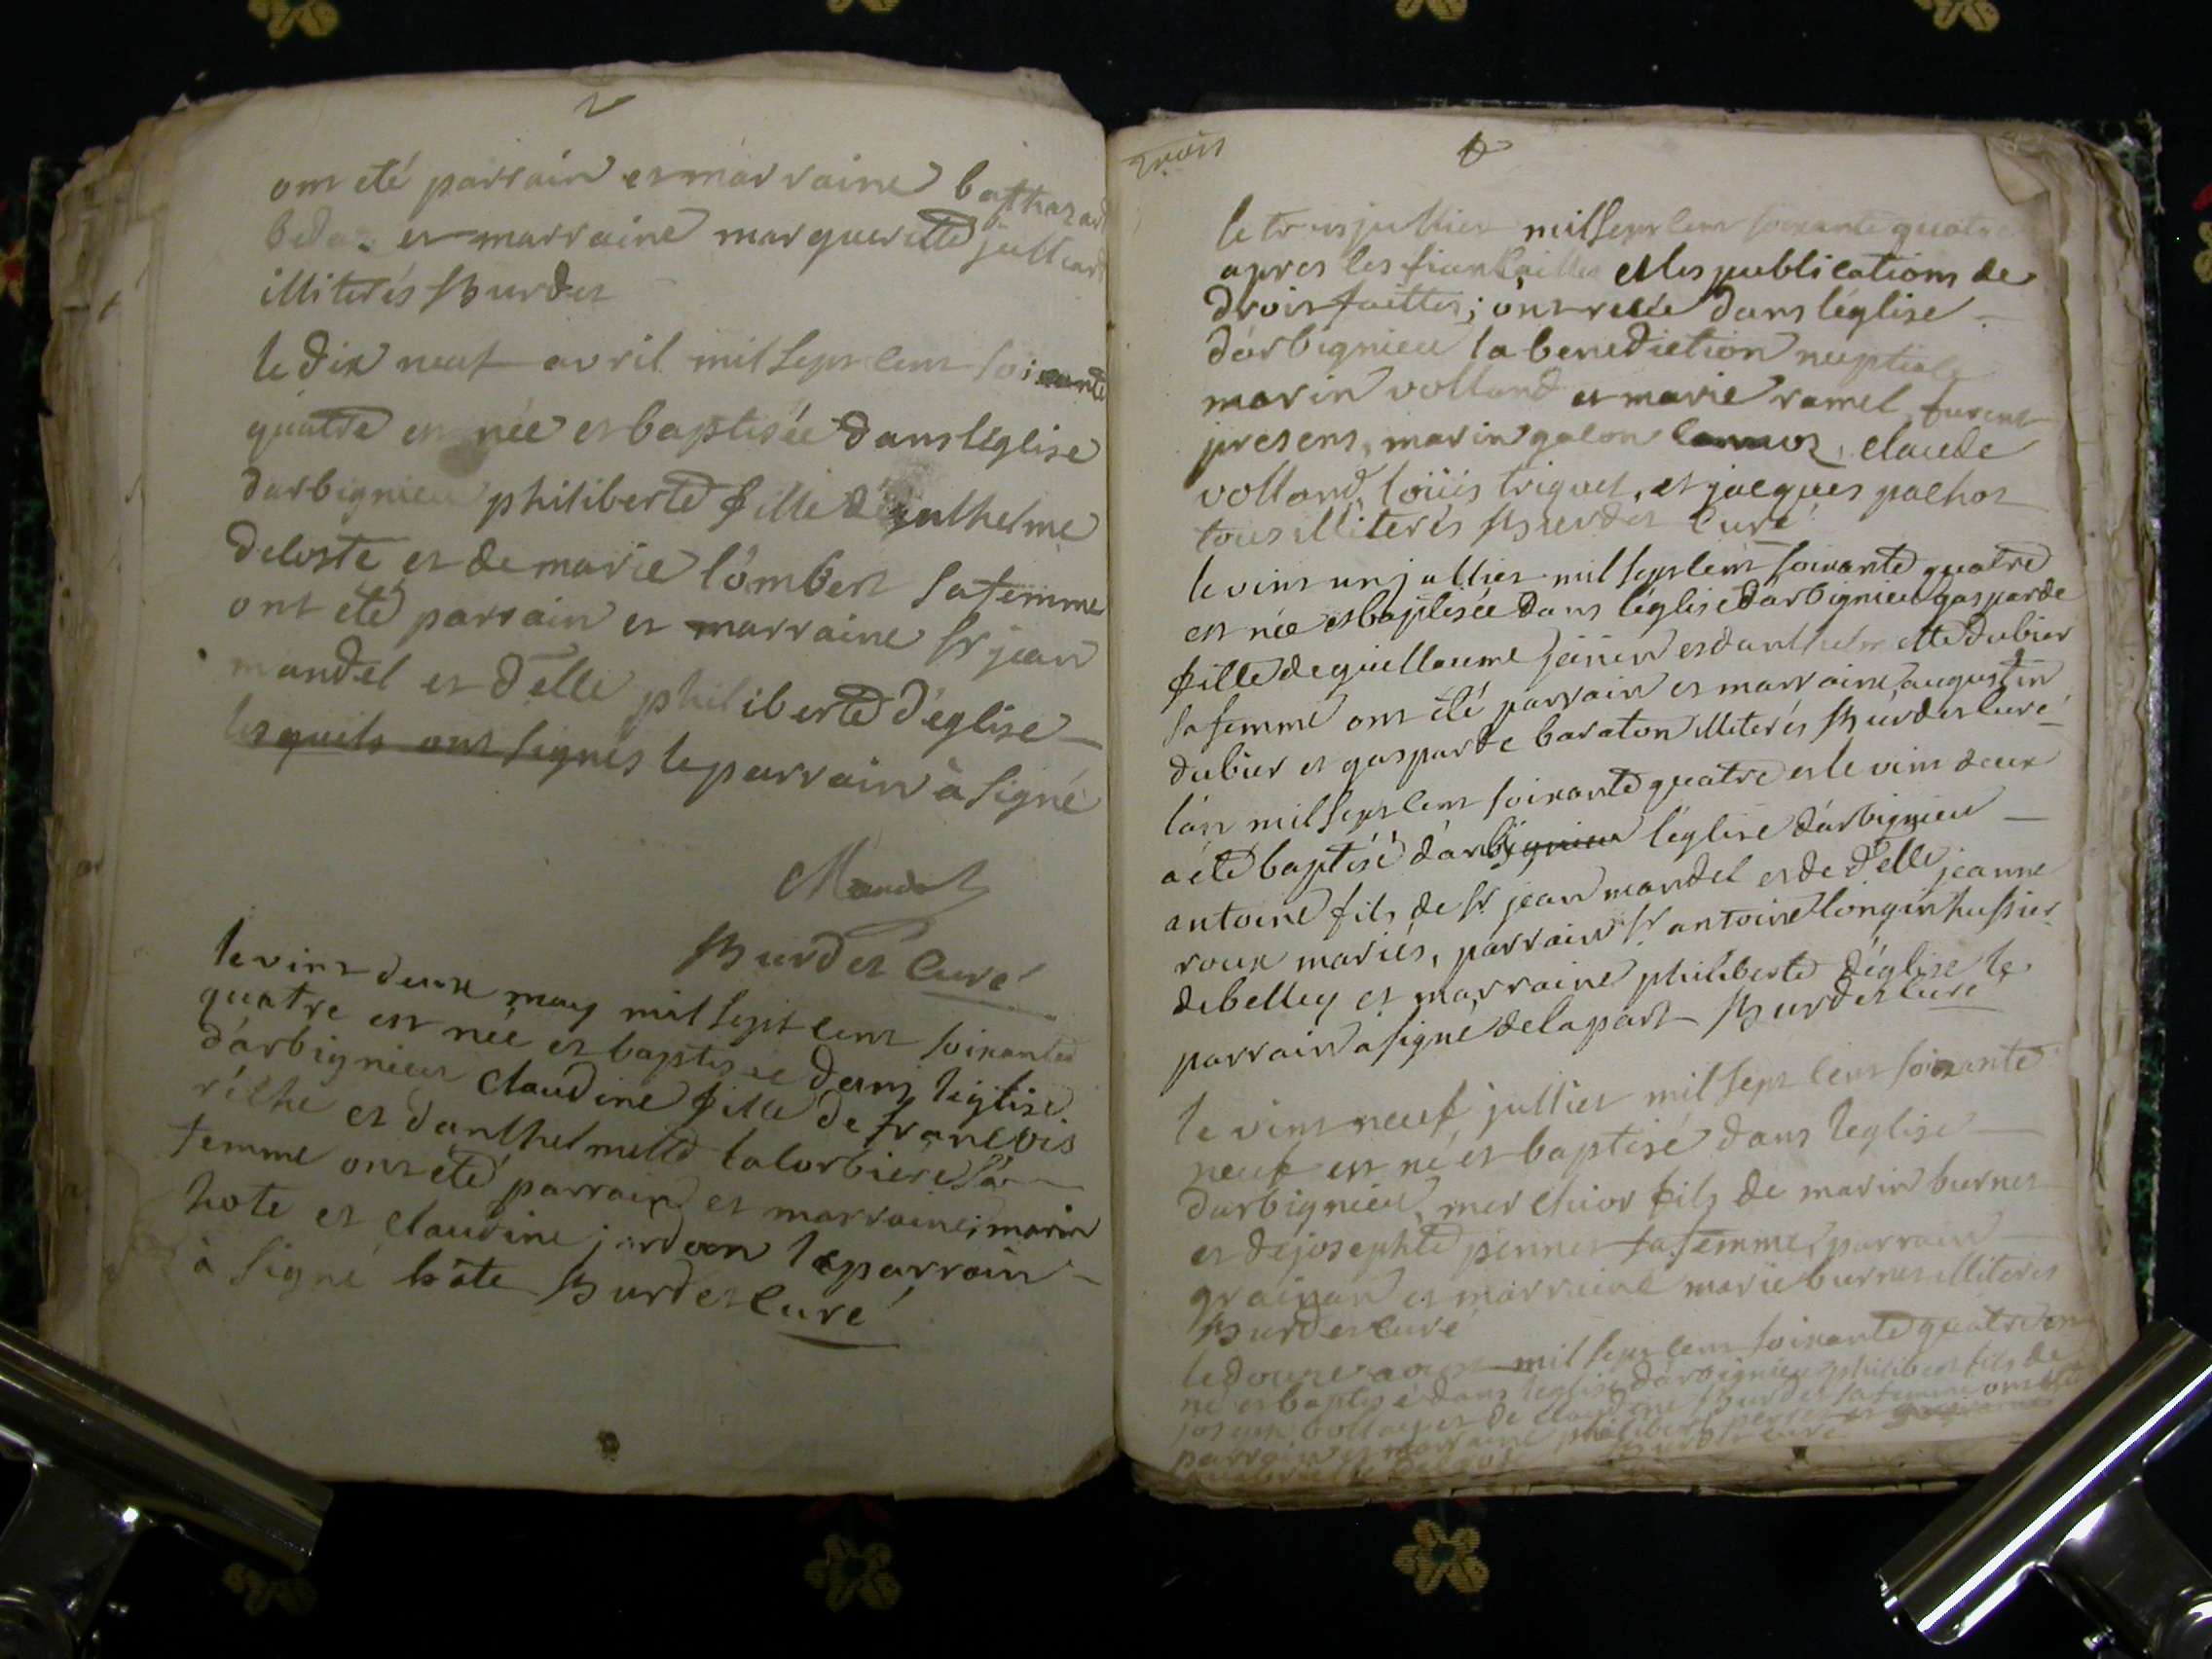 ont eté parrain et marraine baltazard
beda et marraine margueritte julliard
illiterés Burdet
le dix neuf avril mil sept cent soixante
quatre est née et baptisée dans léglise
darbignieu philiberte fille d'anthelme
deloste et de marie lombert sa femme
ont eté parrain et marraine sr jean
mandel et d'elle philiberte d'église
lesquels ont signés le parrain à signé
Mandel
Burdet curé
le vint deux may mil sept cent soixante
quatre est née et baptisée dans léglise
d'arbignieu claudine fille de francois
riche et danthelmette lalorbiere sa
femme ont eté parrain et marraine; marin
hote et claudine jordan le parrain
à signé hôte Burdet curé
trois
le trois jullier mil sept cent soixante quatre
apres les fiancailles et les publications de
droit faittes; ont recüe dans léglise
d'arbignieu la benediction nuptiale
marin volland et marie ramel furent
presens, marin galon claude
volland, loüis triquet, et jacques pachot
tous illiterés Burdet curé
le vint un jullier mil sept cent soixante quatre
est née et baptisée dans léglise d'arbignieu gasparde
fille de guillaume janin et danthelmette dubier
sa femme ont eté parrain et marraine, augustin
dubier et gasparde baraton illiterés Burdet curé
l'an mil sept cent soixante quatre et le vint deux
a eté baptisé d'arbignieu l'église d'arbignieu
antoine fils de sr jean mandel et de d'elle jeanne
roux mariés, parrain sr antoine longin hussier
de belley et marraine philiberte d'église le
parrain a signé de la part Burdet curé
le vint neuf jullier mil sept cent soixante
neuf est né et baptisé dans leglise
darbignieu, merchior fils de marin burnet
et de josephte pennet sa femme, parrain
grainan et marraine marie burnet illiterés
Burdet curé
le douze aout mil sept cent soixante quatre est
né et baptisé dans leglise d'arbignieu philibert fils de
et de claudine Burdet sa femme ont eté
parrain et marraine philibert perret et
Burdet curé